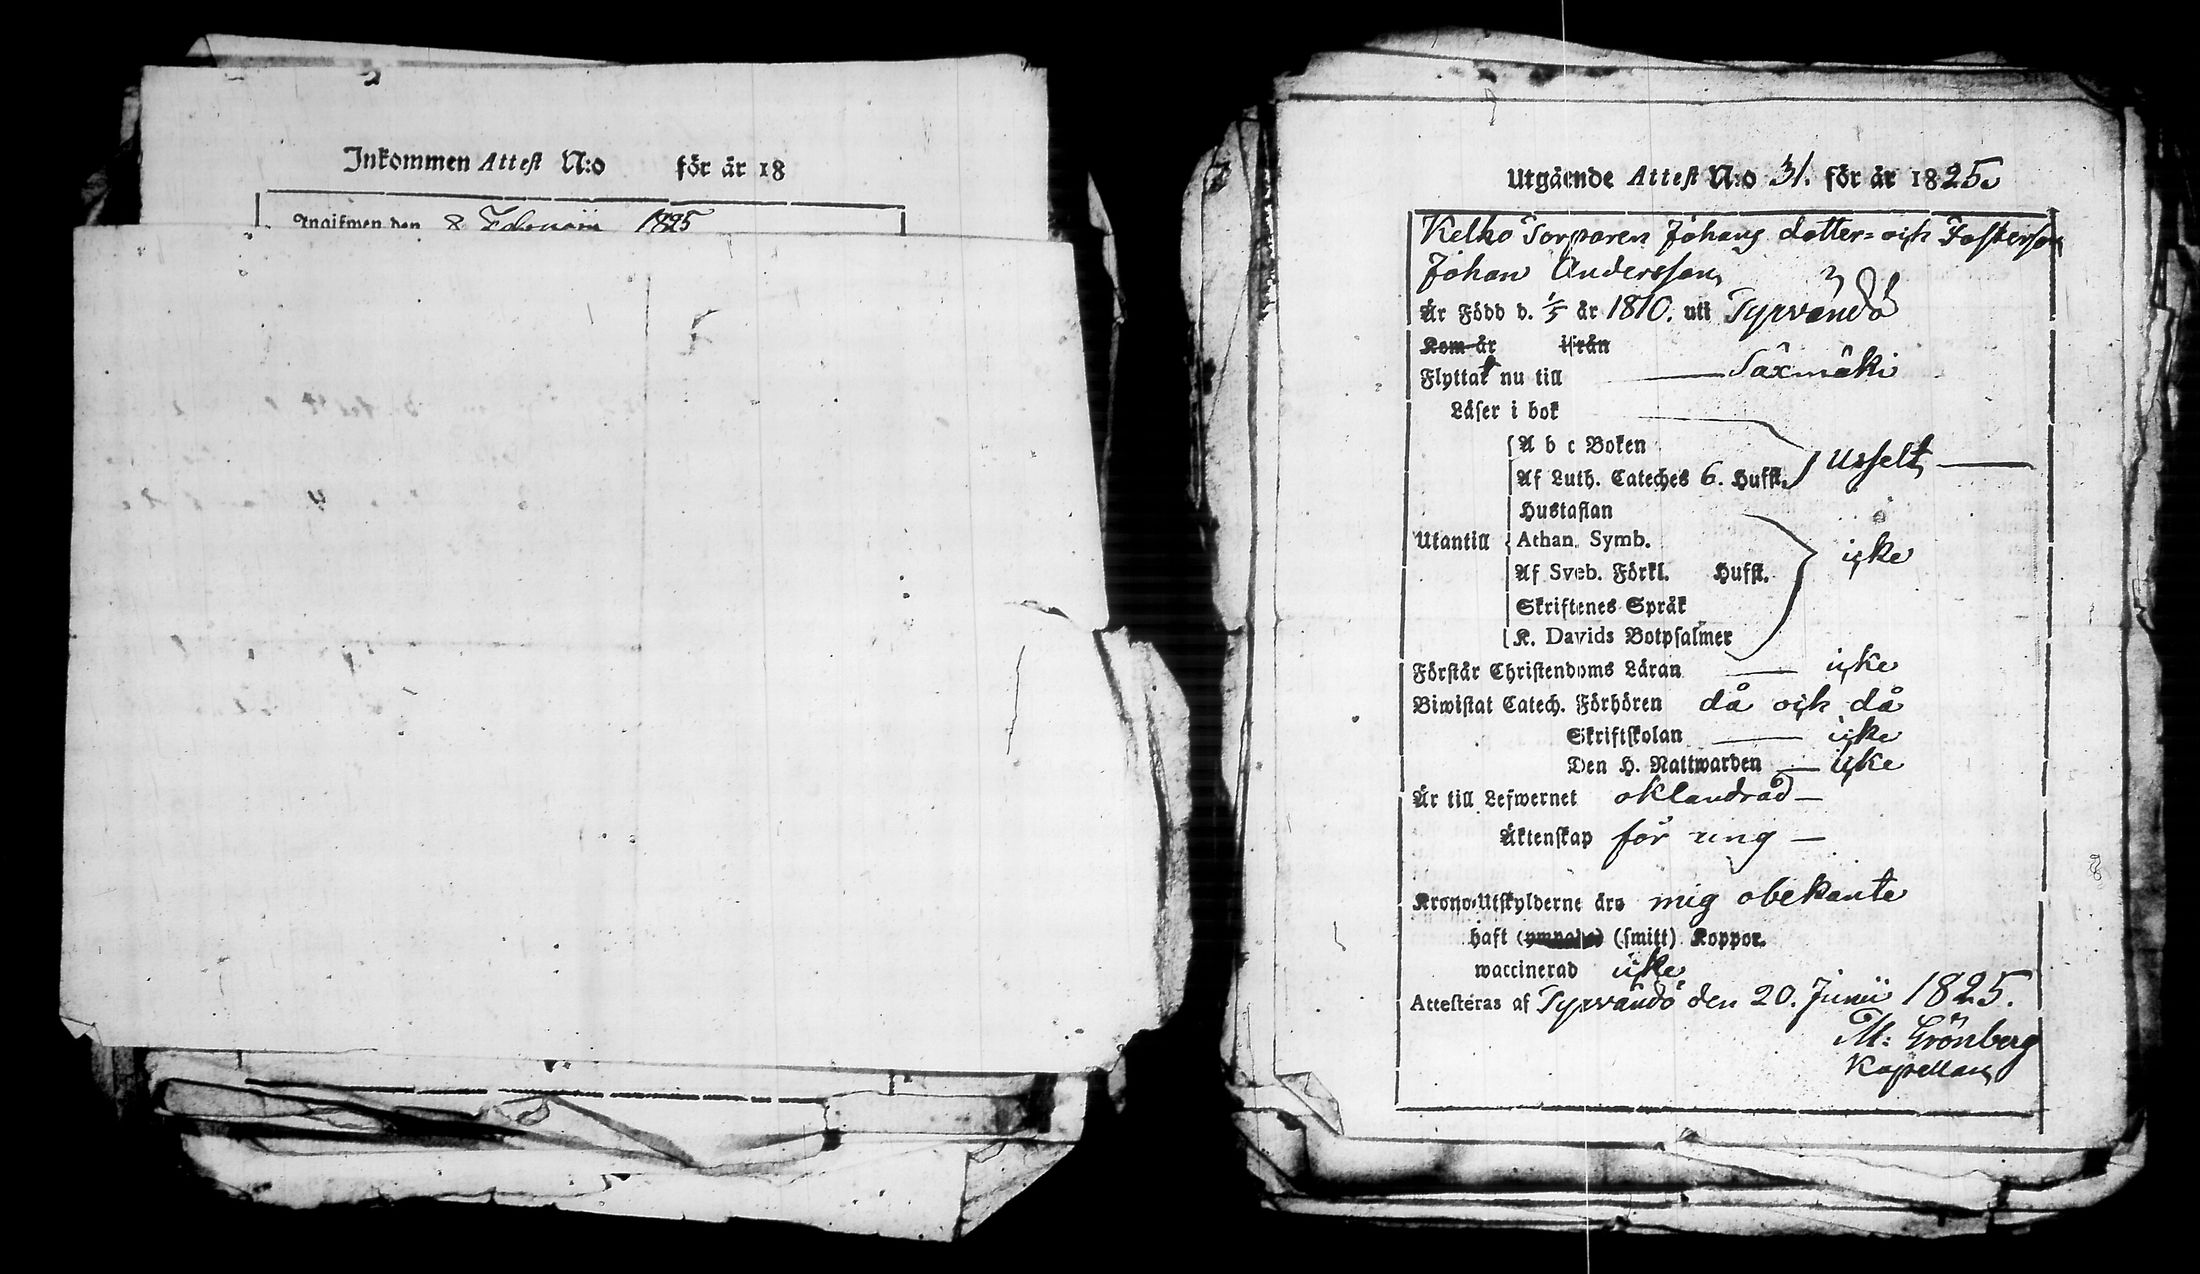 Inkommen Attest N:o för år 18
Ingifwen den 8 Februarii 1825
Utgående Attest N:o 31. för år 1825.
Kelho Torparen Johans dotter- och Fosterson
Johan Andersson
Är Född d. 1/5 år 1810. uti Tyrvändö
Kom år ifrån
Flyttar nu till Säxmäki
Läser i bok
A b c Boken
Af Luth. Cateches 6. Hufst. Usselt
Hustaflan
Utantill Athan. Symb. icke
Af Sveb. Förkl. Hufst.
Skriftenes Språk
K. Davids Botpsalmer
Förstår Christendoms Läran icke
Biwistat Catech. Förhören då och då
Skriftskolan icke
Den H. Nattwarden icke
Är till Lefwernet oklandrad
Äktenskap för ung
Krono-Utskylderne äro mig obekante
haft (ympade) (smitt) Koppor.
waccinerad icke
Attesteras af Tyrvändö den 20. Junii 1825.
M: Grönberg
Kapellan